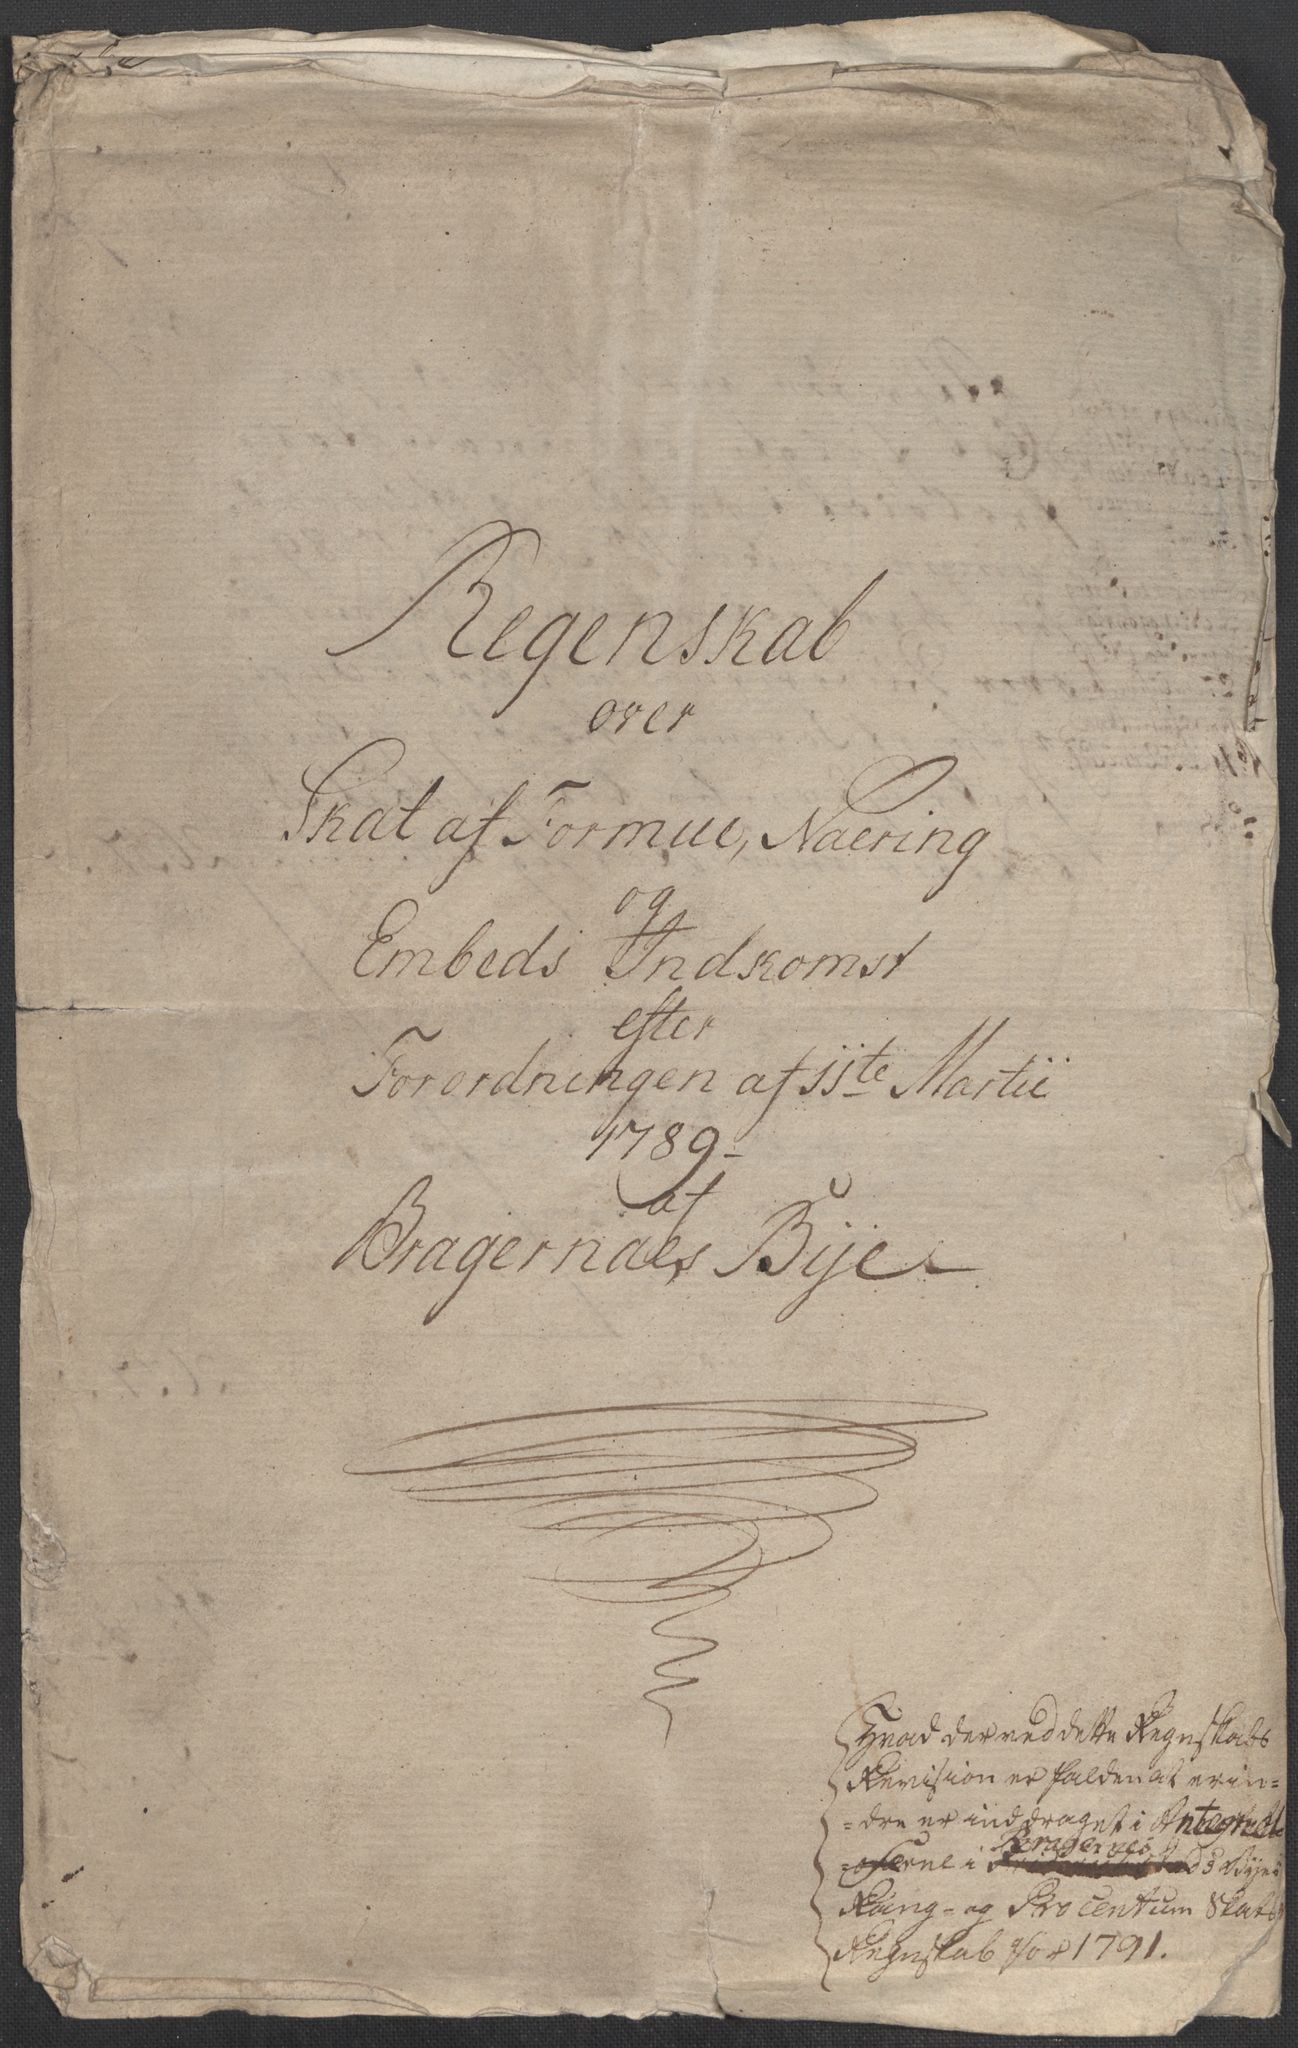 Regenskab
over
Skat af Formue, Naering
og
Embeds Indskomst
efter
Forordningen af 11te Martii
1789
af
Bragernaes Bije
Hvad der ved dette Regnskabs
Revision er falden at erin=
=dre er inddraget i
i Bragernes Byes
Rang- og Procentum Skats
Regnskab for 1791.